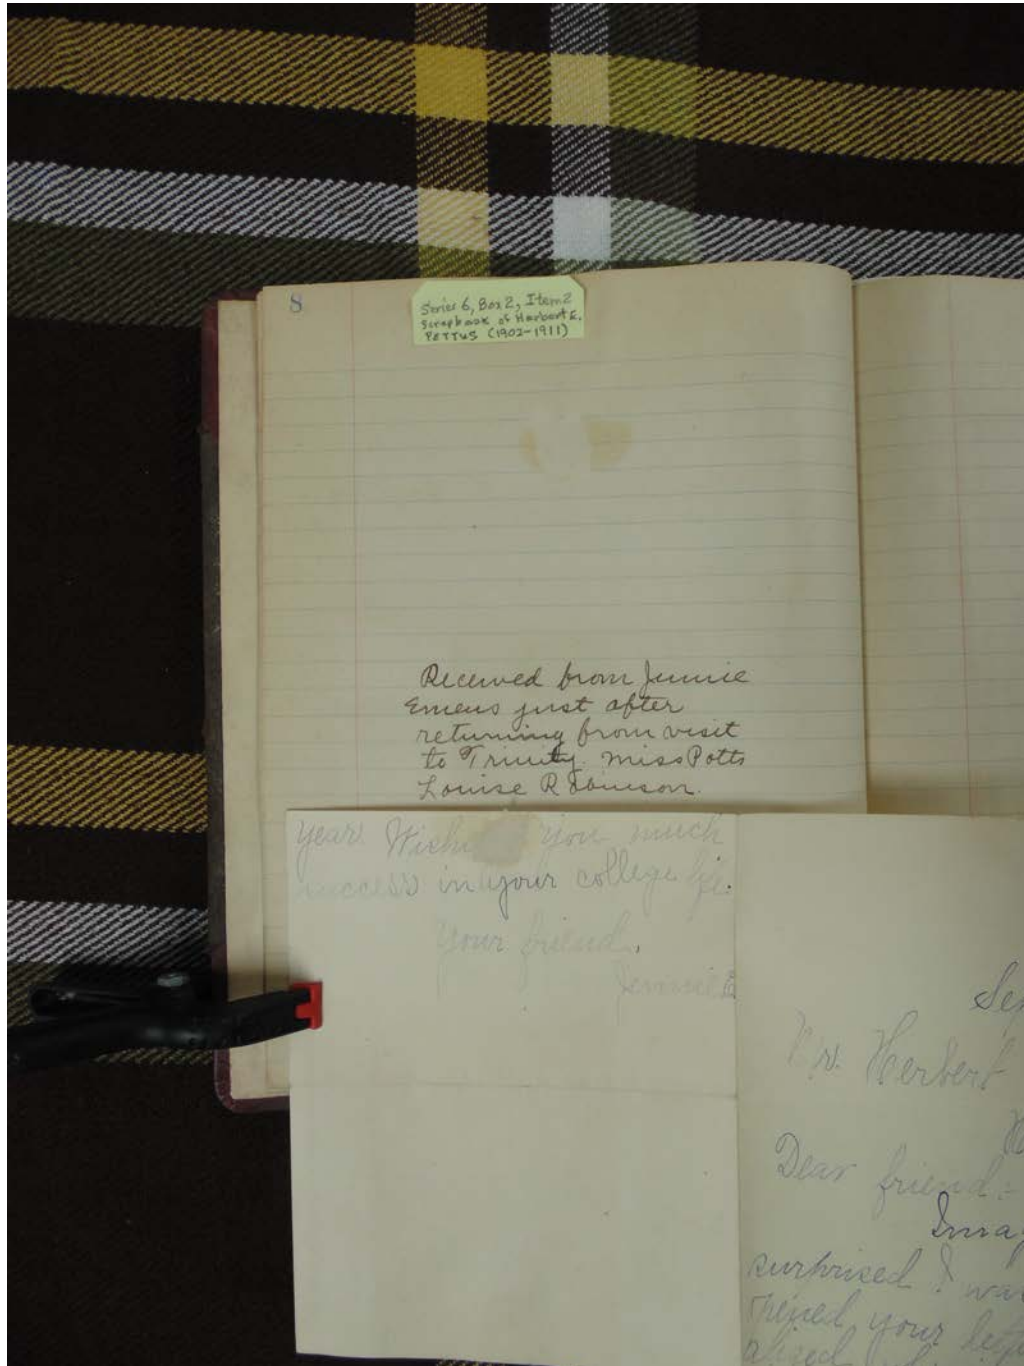 8
Series 6, Box 2, Item 2
Scrapbook of Herbert E.
PETTUS (1902-1911)
Received from Jennie
Emens just after
returning from visit
to Trinity. Miss Potts
Louise Robinson.
year. Wishing you much
success in your college life.
Your friend,
Jennie E
Sep
Mr. Herbert
Dear friend:-
Imag
surprised I was
opened your lette